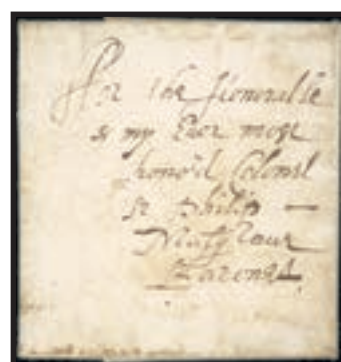 ffor the honoralle
& my Ever more
honord Colonel
Sr Philip —
Musgraue
Baronet